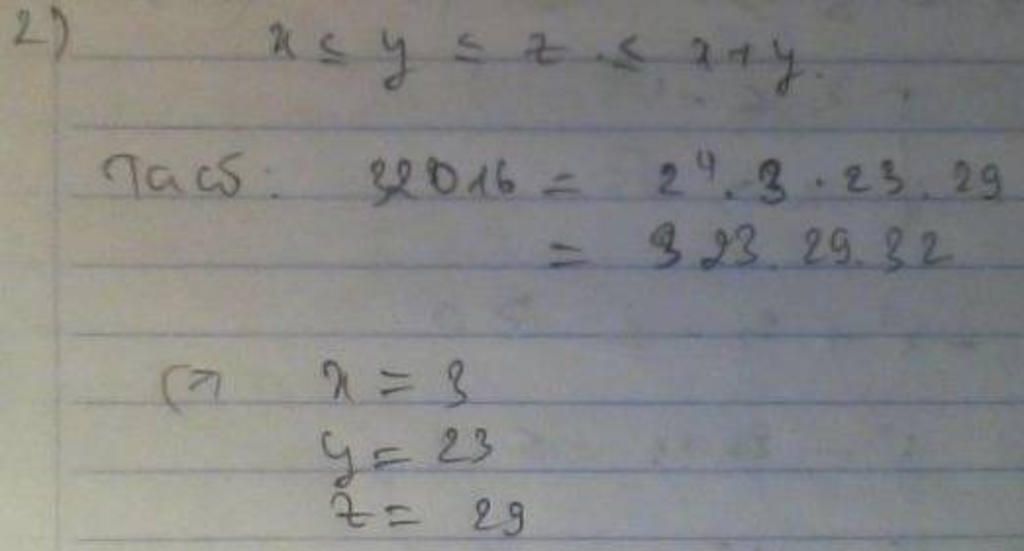 2) x ≤ y ≤ z ≤ x + y.
32016 = 2⁴ . 3 . 23 . 29
= 3 23 . 29 . 32
x = 3
y = 23
z = 29